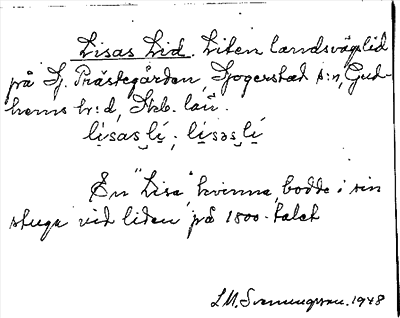 Lisas Lid. Liten landsvägslid
på L. Prästegården, Ljogerstad s:n, Gud-
hems hr:d, Skb. län.
li̱sas lí; li̱səs lí
En "Lisa", kvinna, bodde i sin
stuga vid liden på 1800-talet
L.M. Svenungsson. 1948